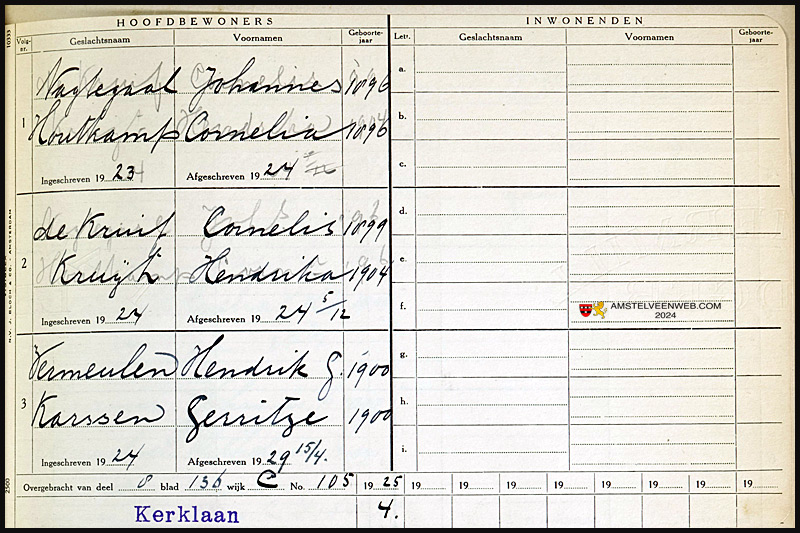 HOOFDBEWONERS INWONENDEN
Volg-nr. Geslachtsnaam Voornamen Geboorte-jaar Letr. Geslachtsnaam Voornamen Geboorte-jaar
Nagtegaal Johannes 1896 a.
1 Houtkamp Cornelia 1896 b.
Ingeschreven 1923 Afgeschreven 1924 c.
de Kruif Cornelis 1899 d.
2 Hendrika 1904 e.
Ingeschreven 1924 Afgeschreven 1924 5/12 f.
AMSTELVEENWEB.COM
2024
Vermeulen Hendrik G. 1900 g.
3 Karssen Gerritje 1900 h.
Ingeschreven 1924 Afgeschreven 1929 15/4. i.
Overgebracht van deel 8 blad 136 wijk C No. 105 1925 19 19 19 19 19 19 19 19
Kerklaan 4.
10333
N.V. J. BLOCH & CO. - AMSTERDAM
2500